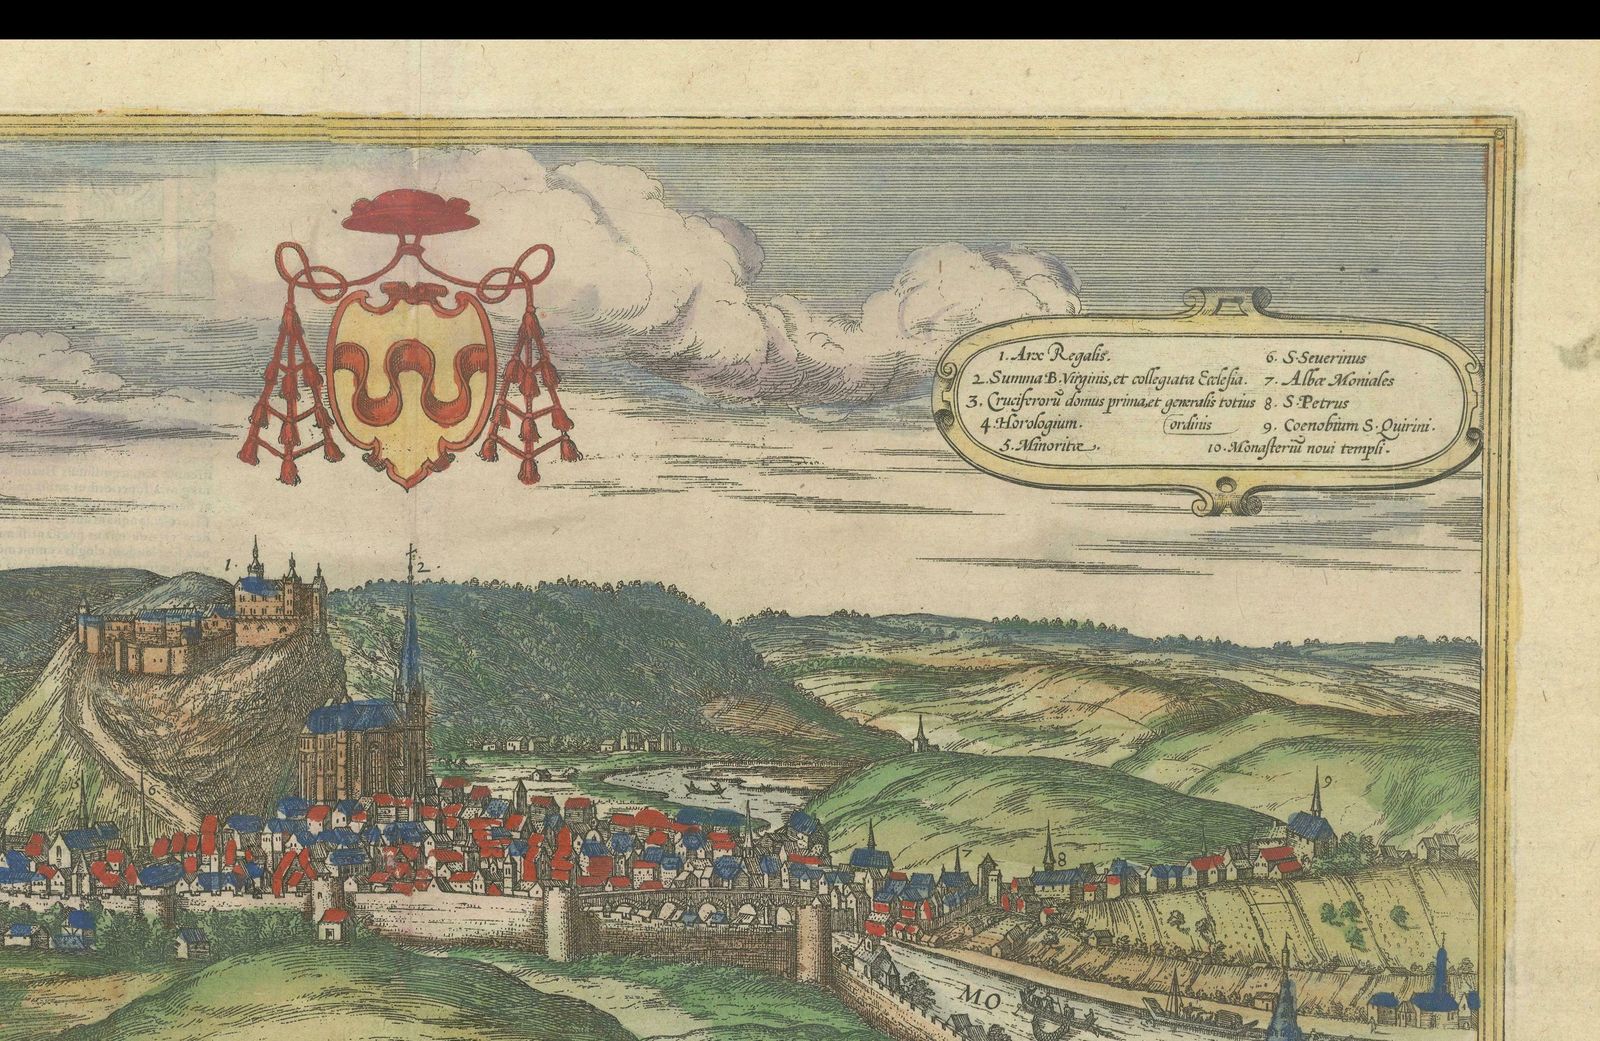 1. Arx Regalis.
2. Summa B. Virginis, et collegiata Ecclesia.
3. Cruciferorū domus prima, et generalis totius
ordinis
4. Horologium.
5. Minoritæ.
6. S. Seuerinus
7. Albæ Moniales
8. S. Petrus
9. Coenobium S. Quirini.
10. Monasteriū noui templi.
1.
2.
5
6.
7
8
9
MO